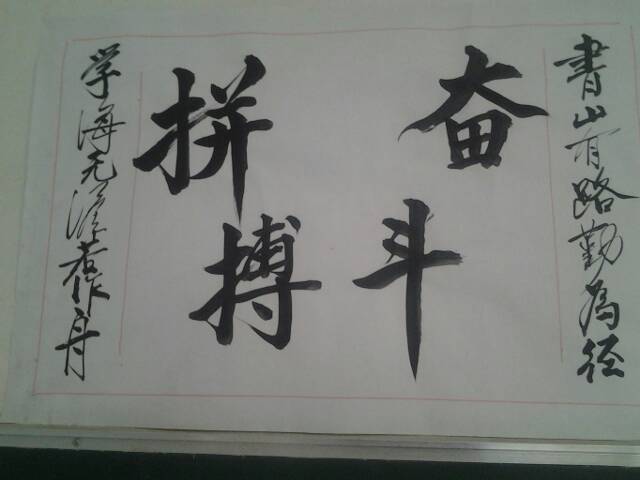 書山有路勤為径
奋斗
拼搏
学海无涯苦作舟